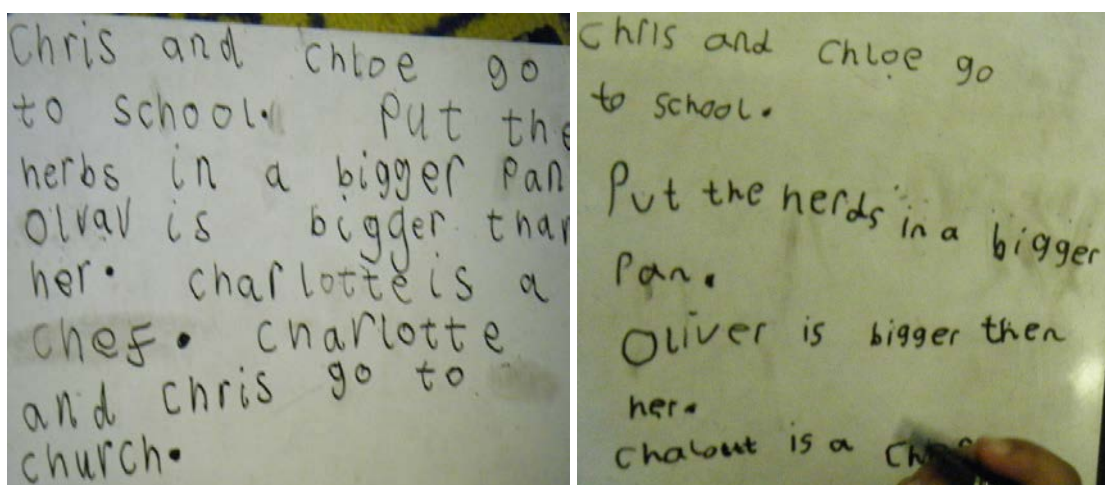 Chris and Chloe go
to school. Put the
herbs in a bigger Pan
Olvav is bigger than
her. charlotte is a
chef. charlotte
and chris go to
church.
Chris and Chloe go
to school.
Put the herds in a bigger
Pan.
Oliver is bigger then
her.
chalout is a